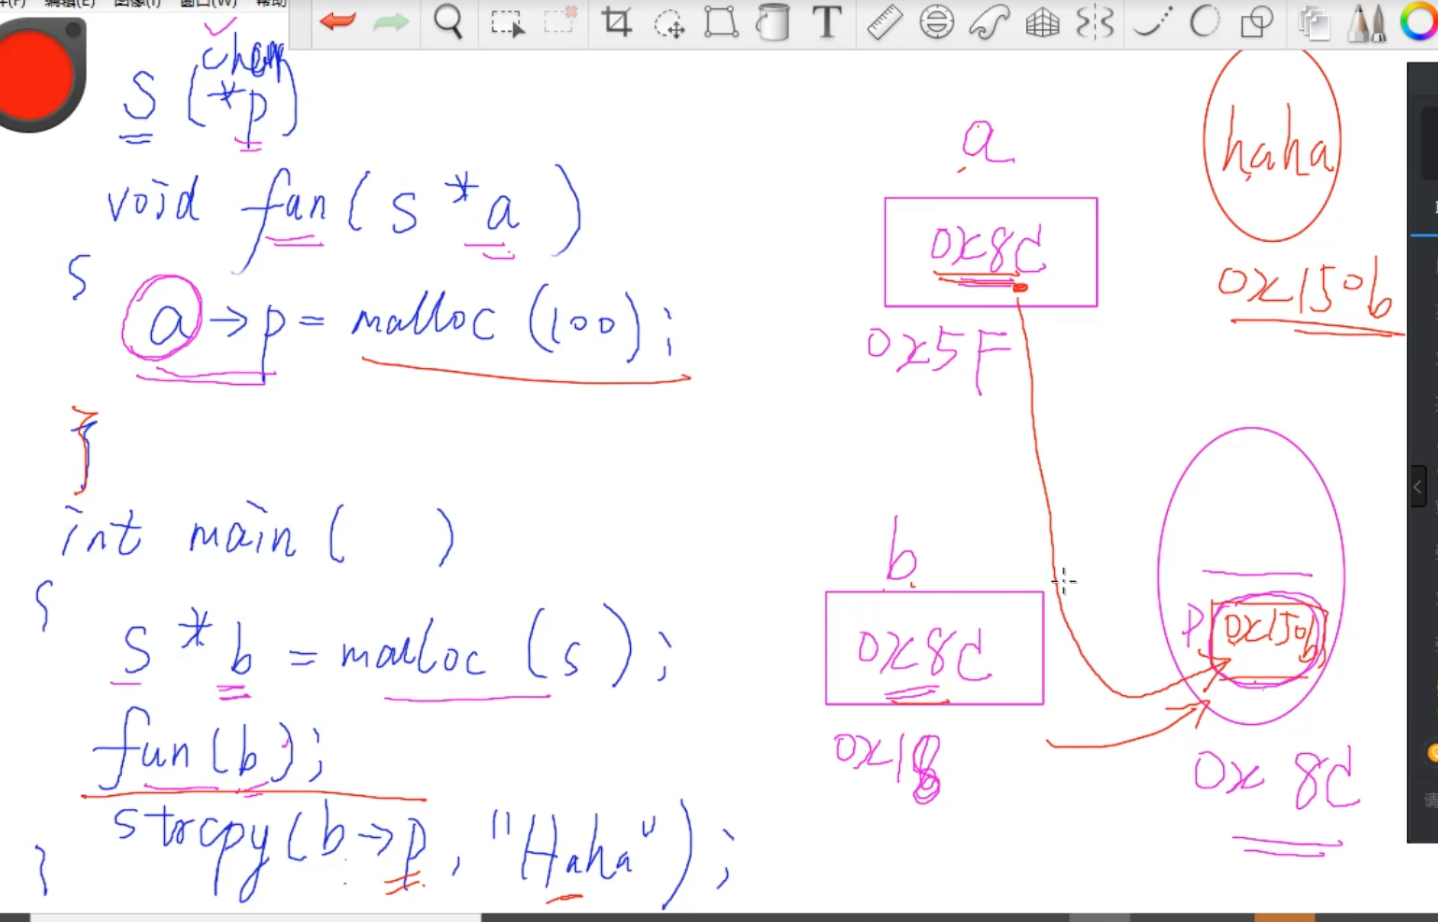 编辑(E) 图像(I) 窗口(W) 帮助
char
S (*p)
void fan(S *a)
{
a->p = malloc(100);
}
int main( )
{
S *b = malloc(s);
fun(b);
strcpy(b->p, "Haha");
}
a
0x8d
0x5F
haha
0x150b
b
0x8d
0x18
p 0x150b
0x 8d
T